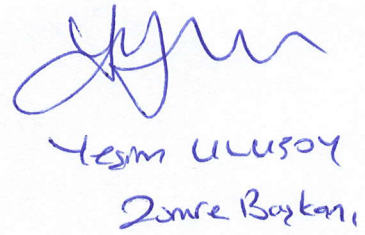 Yeşim ULUSOY
Zümre Başkanı